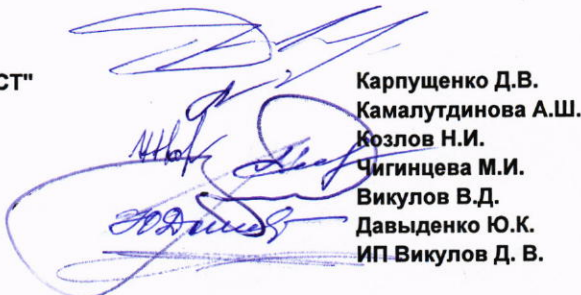 СТ"
Карпущенко Д.В.
Камалутдинова А.Ш.
Козлов Н.И.
Чигинцева М.И.
Викулов В.Д.
Давыденко Ю.К.
ИП Викулов Д. В.